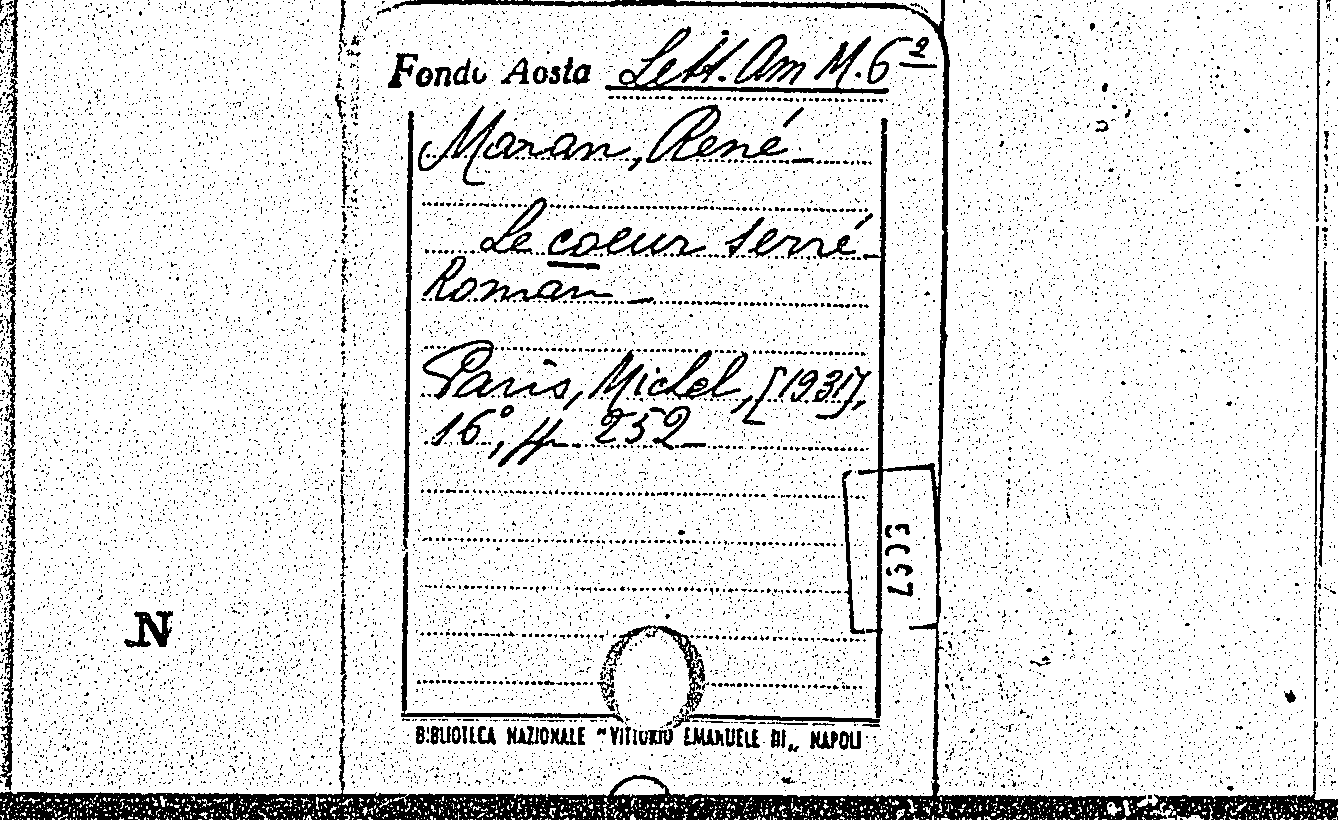 Fondo Aosta Lett. Am M. 62
Maran, René_
Le coeur serré_
Roman_
Paris, Michel, [1931],
16°, p. 252_
BIBLIOTECA NAZIONALE "VITTORIO EMANUELE III" NAPOLI
N